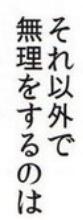 それ以外で
無理をするのは